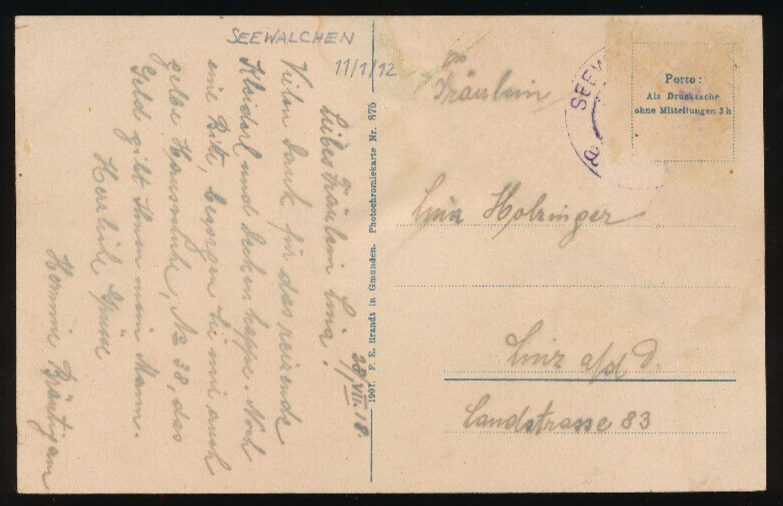 SEEWALCHEN
11/1/12
28/VII. 18.
Liebes Fräulein Lina!
Vielen Dank für das reizende
Kleiderl und Deckenkappe. Noch
eine Bitte, besorgen Sie mir auch
gelbe Hausschuhe, No 38, das
Geld gibt Ihnen mein Mann.
Herzliche Grüsse
Bräutigam
1907. F. E. Brandt in Gmunden. Photochromiekarte Nr. 875
Fräulein
Lina Holzinger
Linz a/d D.
Landstrasse 83
SEEW
Porto:
Als Drucksache
ohne Mitteilungen 3 h